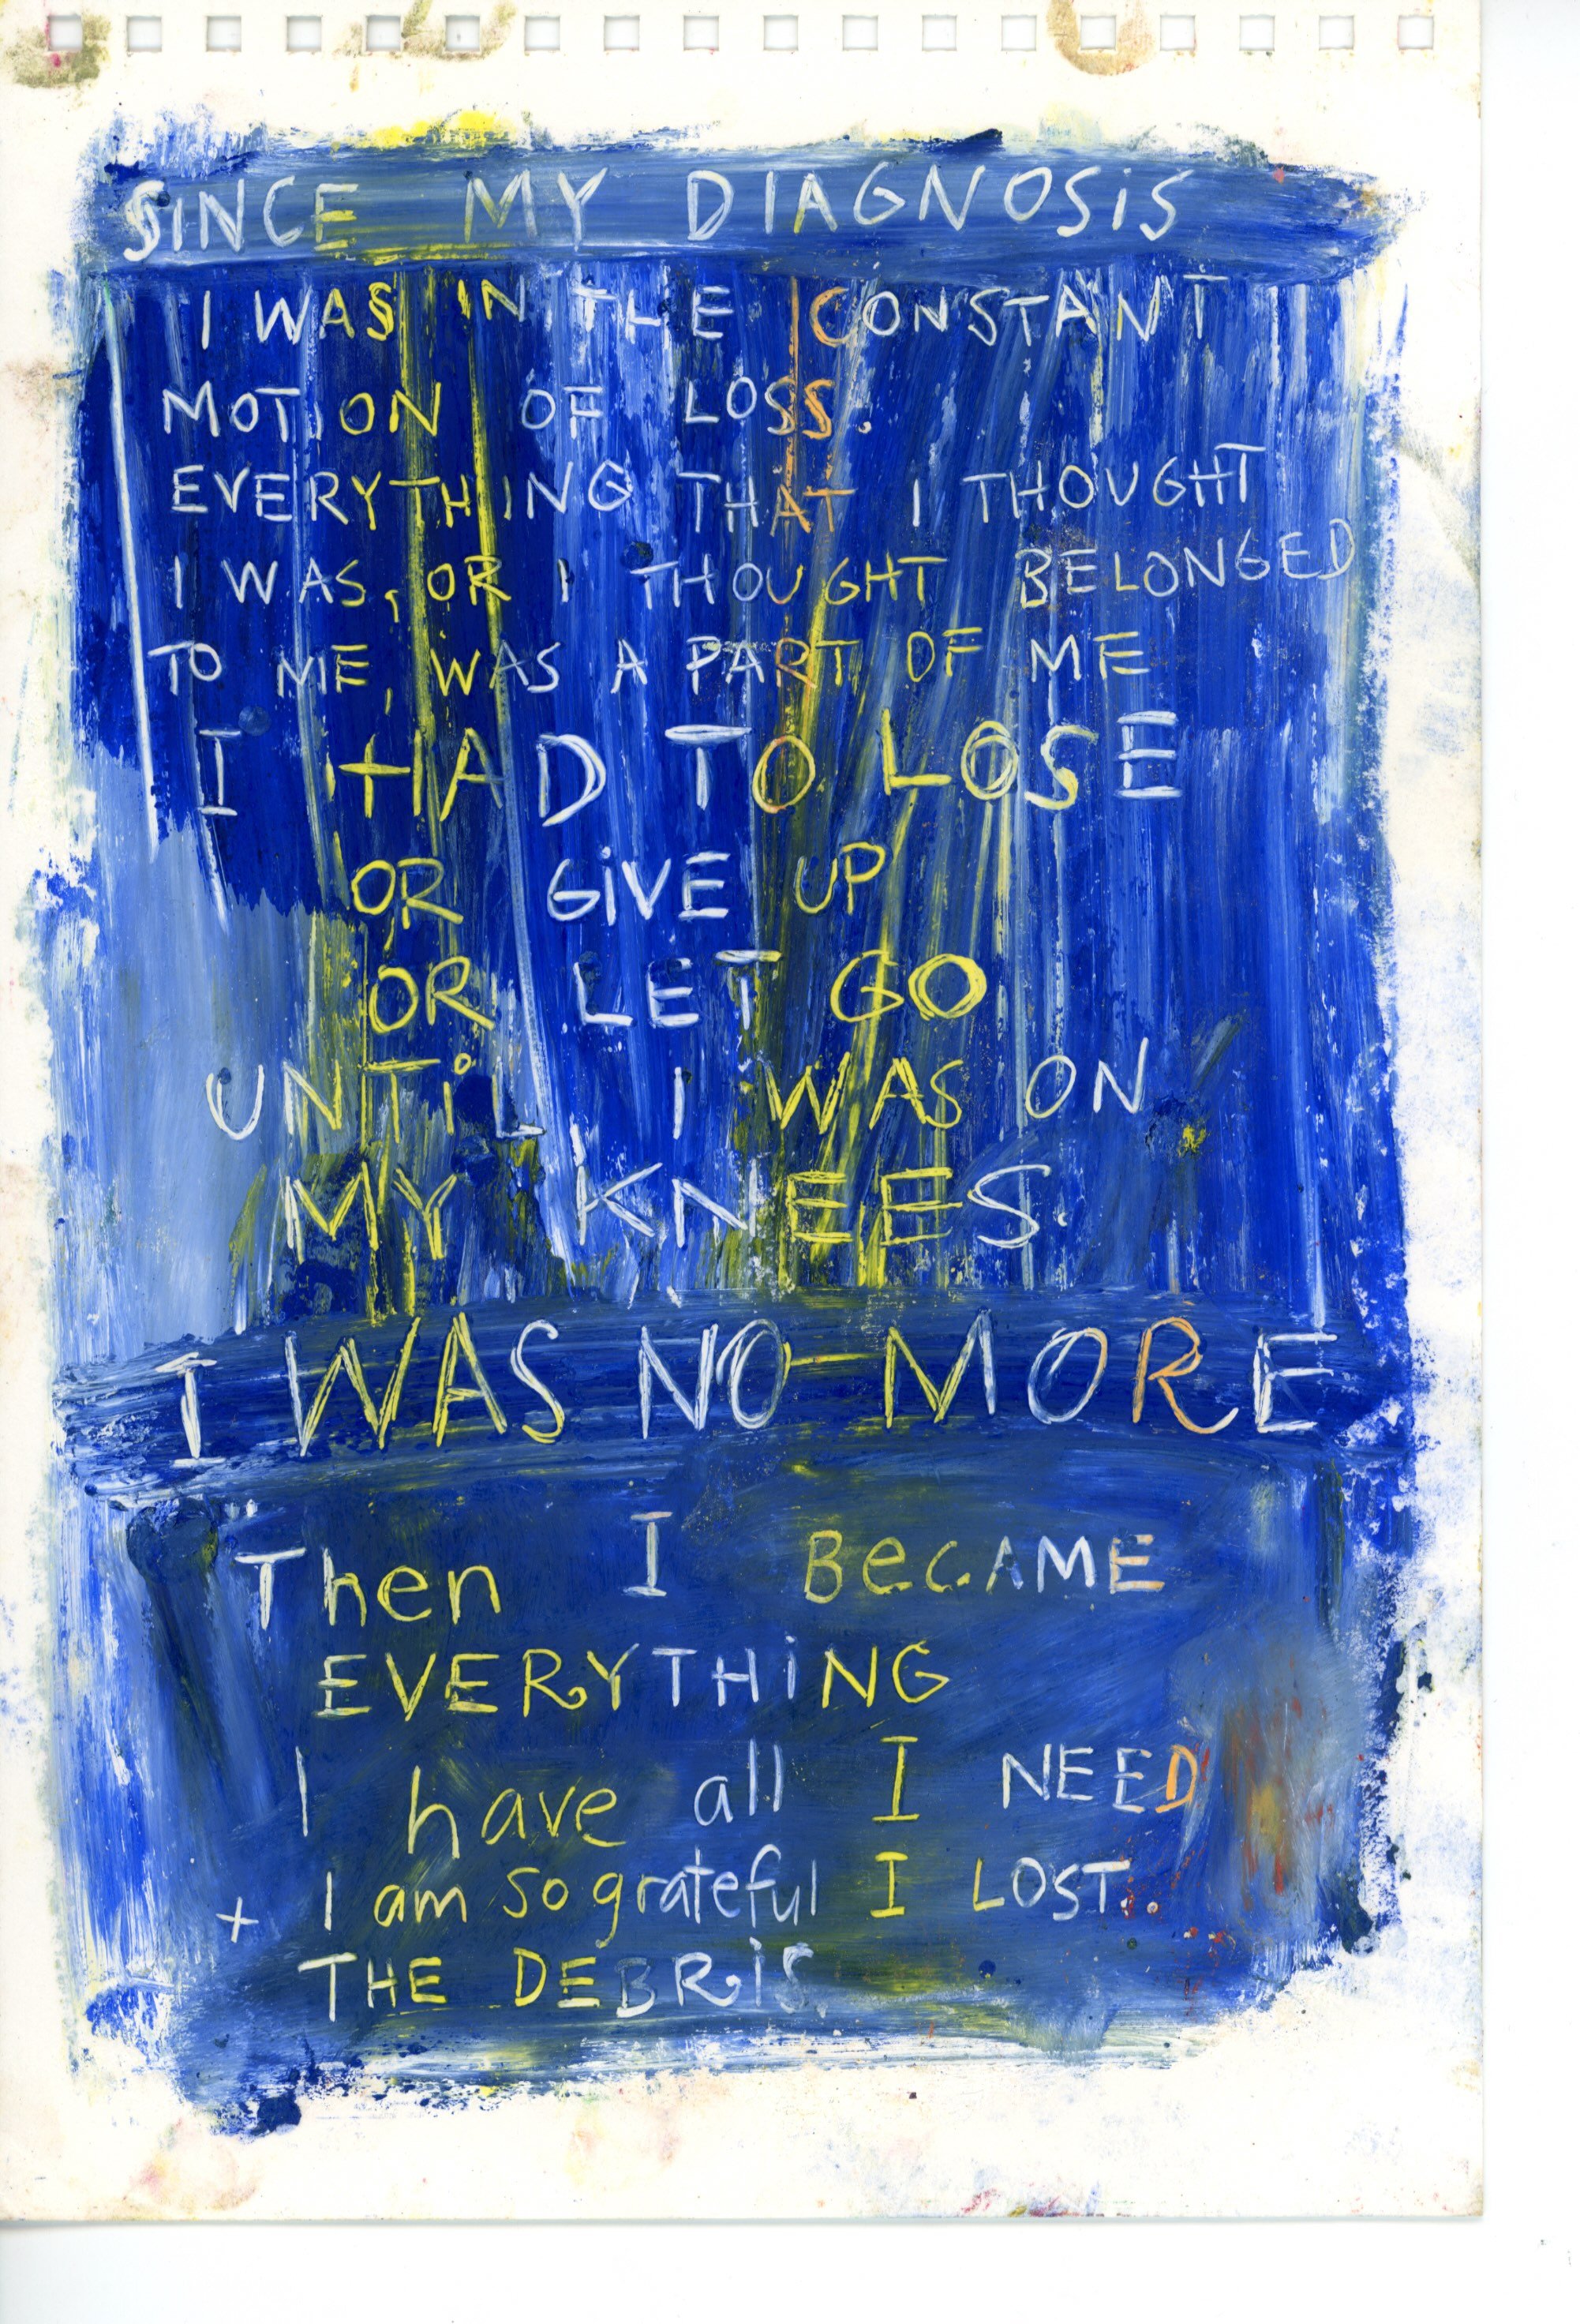 SINCE MY DIAGNOSiS
I WAS IN THE CONSTANT
MOTION OF LOSS.
EVERYTHING THAT I THOUGHT
I WAS, OR I THOUGHT BELONGED
TO ME, WAS A PART OF ME
I HAD TO LOSE
OR GiVE UP
OR LET GO
UNTiL I WAS ON
MY KNEES.
I WAS NO MORE
Then I BecAME
EVERYTHiNG
I have all I NEED
+ I am so grateful I LOST.
THE DEBRiS.